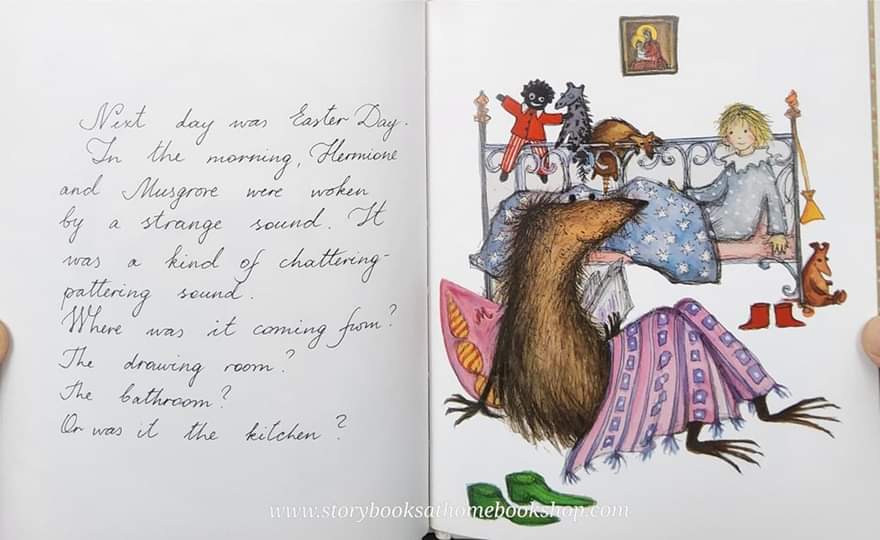 Next day was Easter Day.
In the morning, Hermione
and Musgrove were woken
by a strange sound. It
was a kind of chattering-
pattering sound.
Where was it coming from?
The drawing room?
The bathroom?
Or was it the kitchen?
M
www.storybooksathomebookshop.com